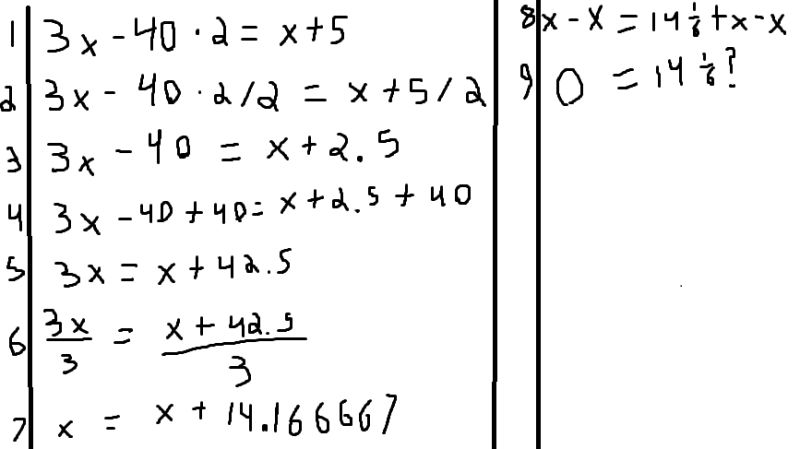 1 3x - 40 · 2 = x + 5
2 3x - 40 · 2 / 2 = x + 5 / 2
3 3x - 40 = x + 2.5
4 3x - 40 + 40 = x + 2.5 + 40
5 3x = x + 42.5
6 3x/3 = x + 42.5/3
7 x = x + 14.166667
8 x - x = 14 1/6 + x - x
9 0 = 14 1/6?